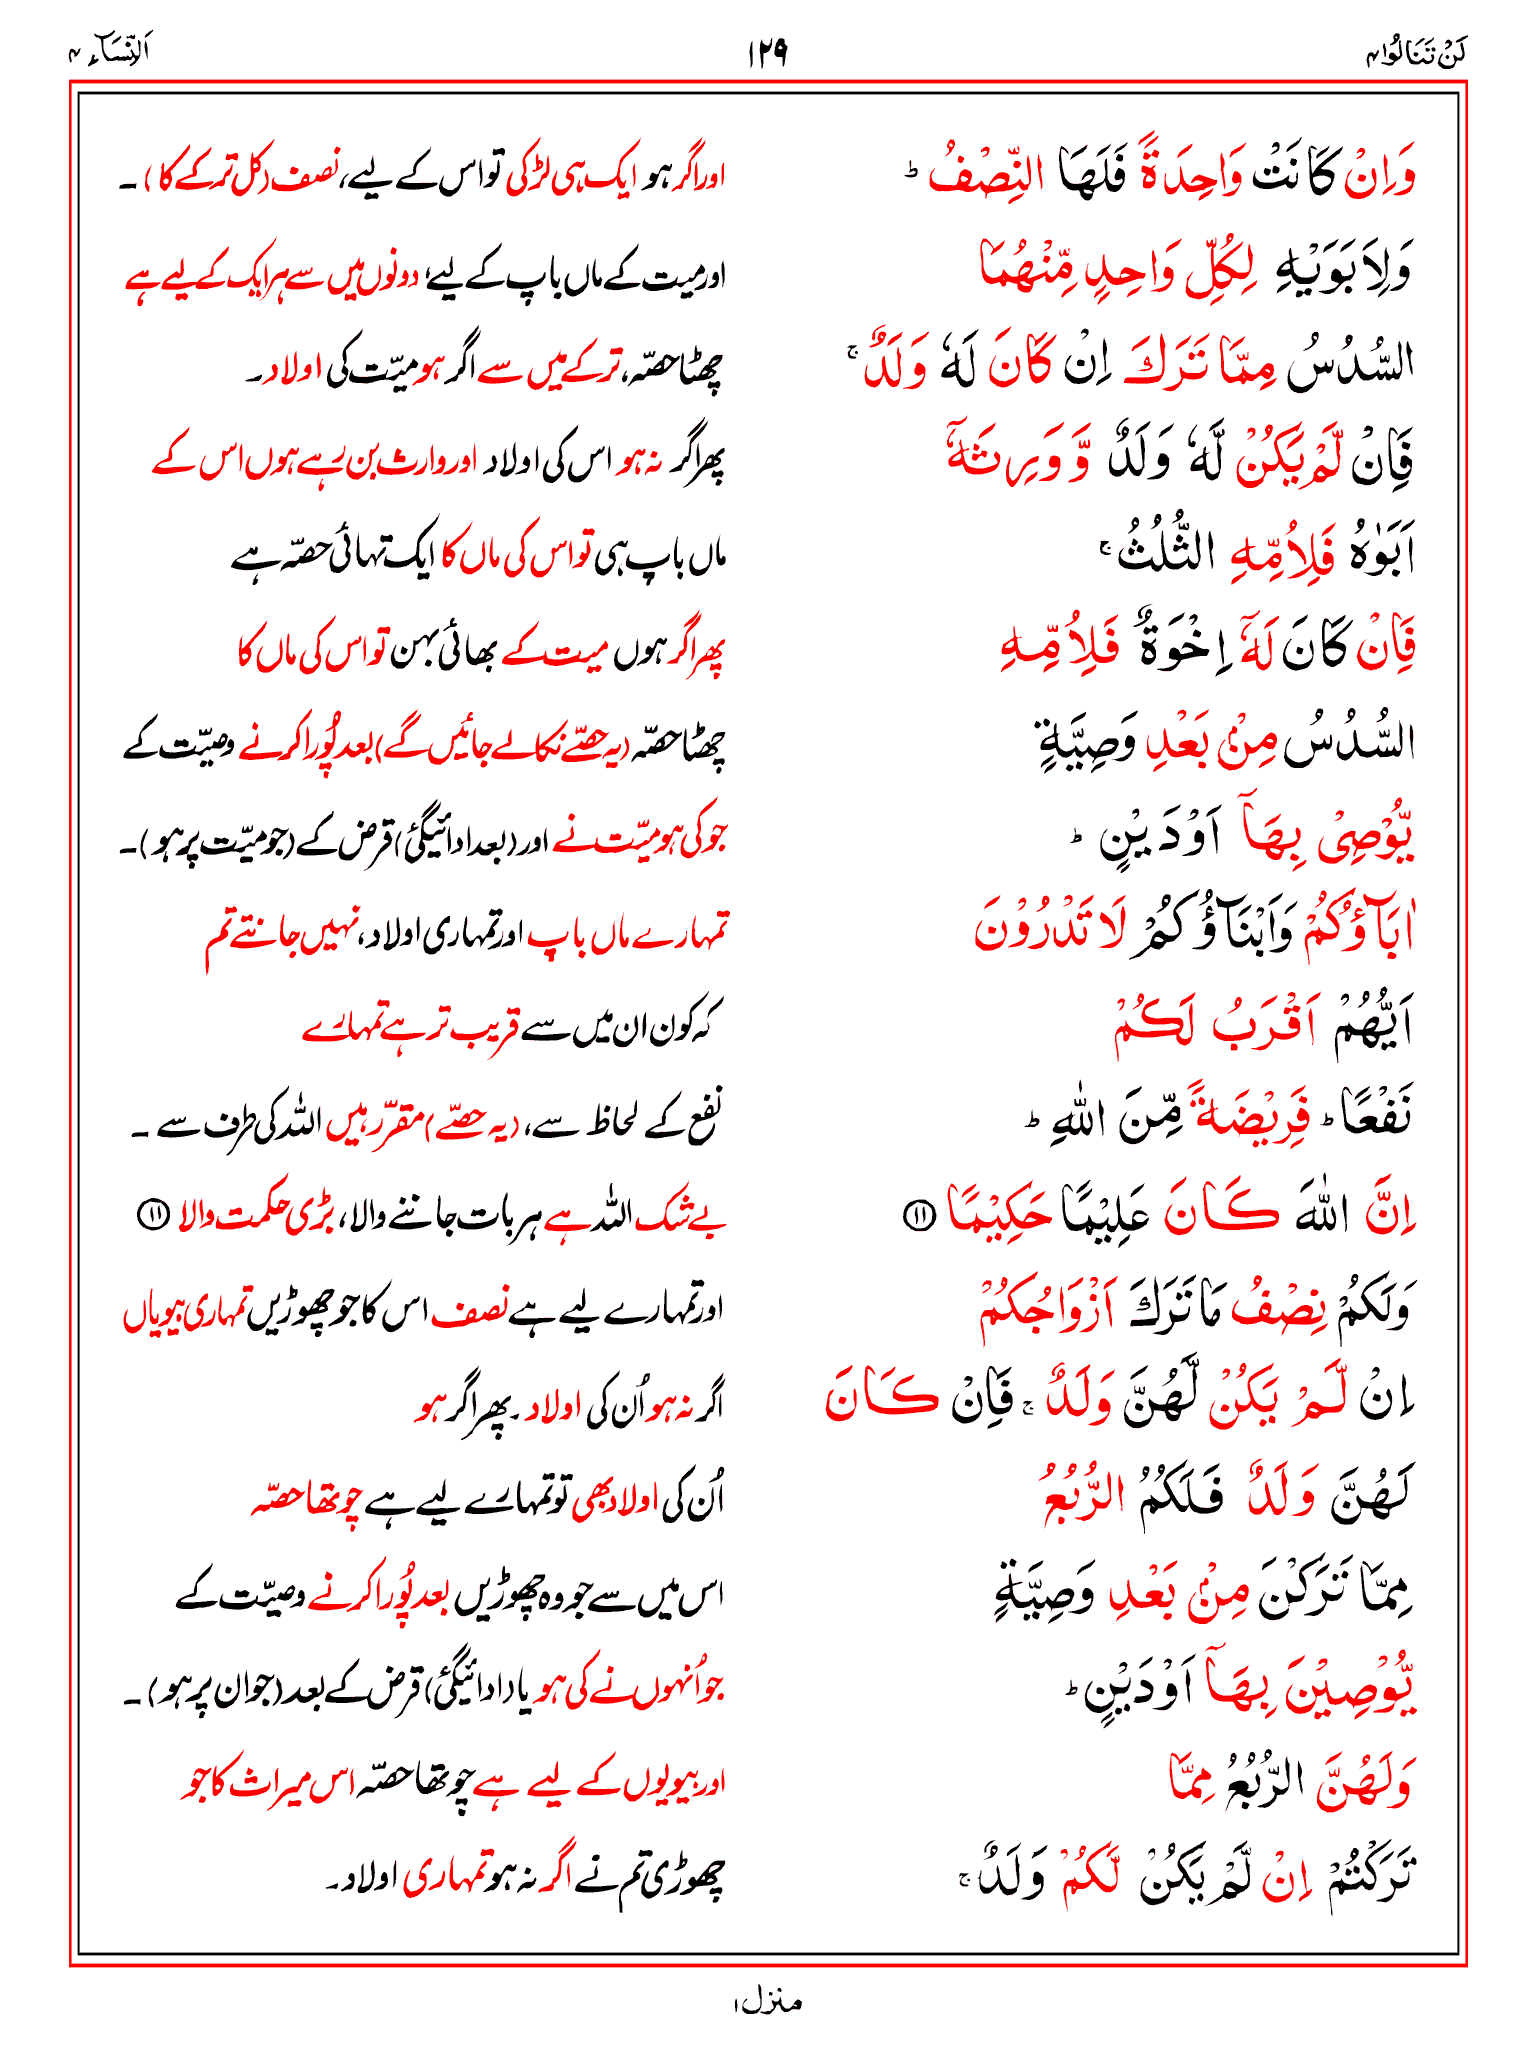 لَنْ تَنَالُوا ۴ ۱۲۹ اَلنِّسَآء ۴
وَاِنْ كَانَتْ وَاحِدَةً فَلَهَا النِّصْفُ ؕ اور اگر ہو ایک ہی لڑکی تو اس کے لیے، نصف (کل ترکے کا)۔
وَلِاَبَوَيْهِ لِكُلِّ وَاحِدٍ مِّنْهُمَا اور میت کے ماں باپ کے لیے، دونوں میں سے ہر ایک کے لیے ہے
السُّدُسُ مِمَّا تَرَكَ اِنْ كَانَ لَهٗ وَلَدٌ ۚ چھٹا حصّہ، ترکے میں سے اگر ہو میّت کی اولاد۔
فَاِنْ لَّمْ يَكُنْ لَّهٗ وَلَدٌ وَّوَرِثَهٗٓ پھر اگر نہ ہو اس کی اولاد اور وارث بن رہے ہوں اس کے
اَبَوٰهُ فَلِاُمِّهِ الثُّلُثُ ۚ ماں باپ ہی تو اس کی ماں کا ایک تہائی حصّہ ہے
فَاِنْ كَانَ لَهٗٓ اِخْوَةٌ فَلِاُمِّهِ پھر اگر ہوں میت کے بھائی بہن تو اس کی ماں کا
السُّدُسُ مِنْۢ بَعْدِ وَصِيَّةٍ چھٹا حصّہ (یہ حصّے نکالے جائیں گے) بعد پُورا کرنے وصیّت کے
يُّوْصِيْ بِهَآ اَوْ دَيْنٍ ؕ جو کی ہو میّت نے اور (بعد ادائیگی) قرض کے (جو میّت پر ہو)۔
اٰبَآؤُكُمْ وَاَبْنَآؤُكُمْ لَا تَدْرُوْنَ تمہارے ماں باپ اور تمہاری اولاد، نہیں جانتے تم
اَيُّهُمْ اَقْرَبُ لَكُمْ کہ کون ان میں سے قریب تر ہے تمہارے
نَفْعًا ؕ فَرِيْضَةً مِّنَ اللّٰهِ ؕ نفع کے لحاظ سے، (یہ حصّے) مقرّر ہیں اللہ کی طرف سے ۔
اِنَّ اللّٰهَ كَانَ عَلِيْمًا حَكِيْمًا ⑪ بے شک اللہ ہے ہر بات جاننے والا، بڑی حکمت والا ⑪
وَلَكُمْ نِصْفُ مَا تَرَكَ اَزْوَاجُكُمْ اور تمہارے لیے ہے نصف اس کا جو چھوڑیں تمہاری بیویاں
اِنْ لَّمْ يَكُنْ لَّهُنَّ وَلَدٌ ۚ فَاِنْ كَانَ اگر نہ ہو اُن کی اولاد۔ پھر اگر ہو
لَهُنَّ وَلَدٌ فَلَكُمُ الرُّبُعُ اُن کی اولاد بھی تو تمہارے لیے ہے چوتھا حصّہ
مِمَّا تَرَكْنَ مِنْۢ بَعْدِ وَصِيَّةٍ اس میں سے جو وہ چھوڑیں بعد پُورا کرنے وصیّت کے
يُّوْصِيْنَ بِهَآ اَوْ دَيْنٍ ؕ جو اُنہوں نے کی ہو یا (ادائیگی) قرض کے بعد (جو ان پر ہو)۔
وَلَهُنَّ الرُّبُعُ مِمَّا اور بیویوں کے لیے ہے چوتھا حصّہ اس میراث کا جو
تَرَكْتُمْ اِنْ لَّمْ يَكُنْ لَّكُمْ وَلَدٌ ۚ چھوڑی تم نے اگر نہ ہو تمہاری اولاد۔
منزل ۱